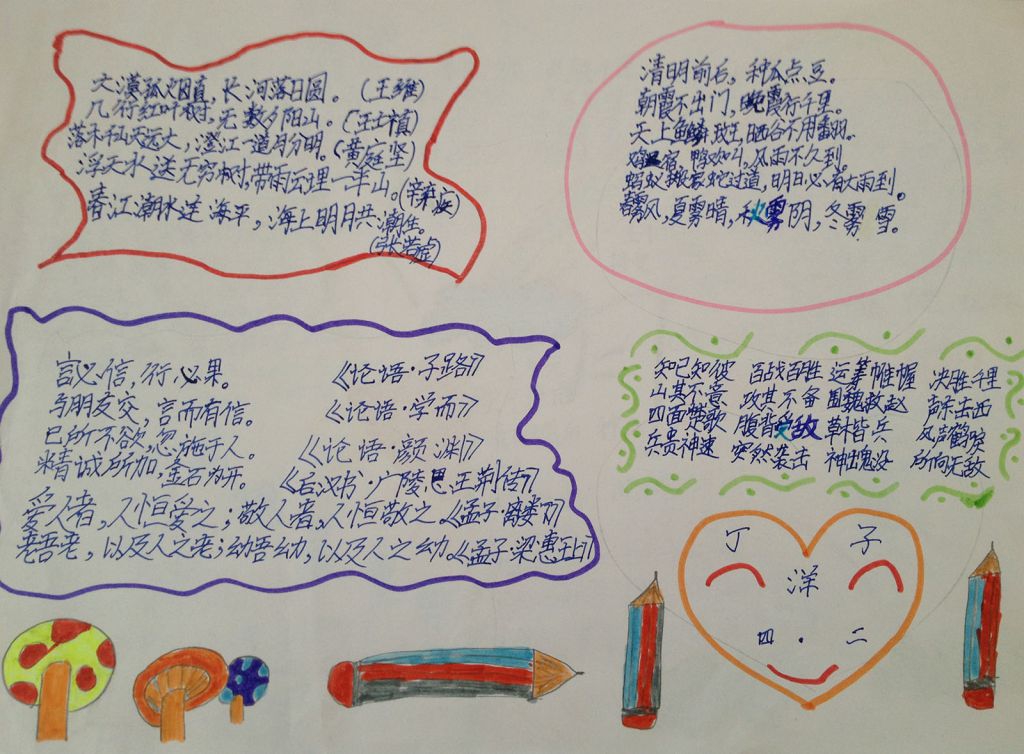 大漠孤烟直，长河落日圆。 (王维)
几行红叶树，无数夕阳山。(王士禛)
落木千山天远大，澄江一道月分明。(黄庭坚)
浮天水送无穷树，带雨云埋一半山。(辛弃疾)
春江潮水连海平，海上明月共潮生。
(张若虚)
清明前后，种瓜点豆。
朝霞不出门，晚霞行千里。
天上鱼鳞斑，晒谷不用翻。
鸡宿 鸭欢叫，风雨不久到。
蚂蚁搬家蛇过道，明日必有大雨到。
春雾风，夏雾晴，秋雾阴，冬雾雪。
言必信，行必果。 《论语·子路》
与朋友交，言而有信。 《论语·学而》
己所不欲，忽施于人。 《论语·颜渊》
精诚所加，金石为开。 《后汉书·广陵思王荆传》
爱人者，人恒爱之；敬人者，人恒敬之。《孟子·离娄下》
老吾老，以及人之老；幼吾幼，以及人之幼。《孟子·梁惠王上》
知己知彼 百战百胜 运筹帷幄 决胜千里
出其不意 攻其不备 围魏救赵 声东击西
四面楚歌 腹背受敌 草木皆兵 风声鹤唳
兵贵神速 突然袭击 神出鬼没 所向无敌
丁 子
洋
四·二